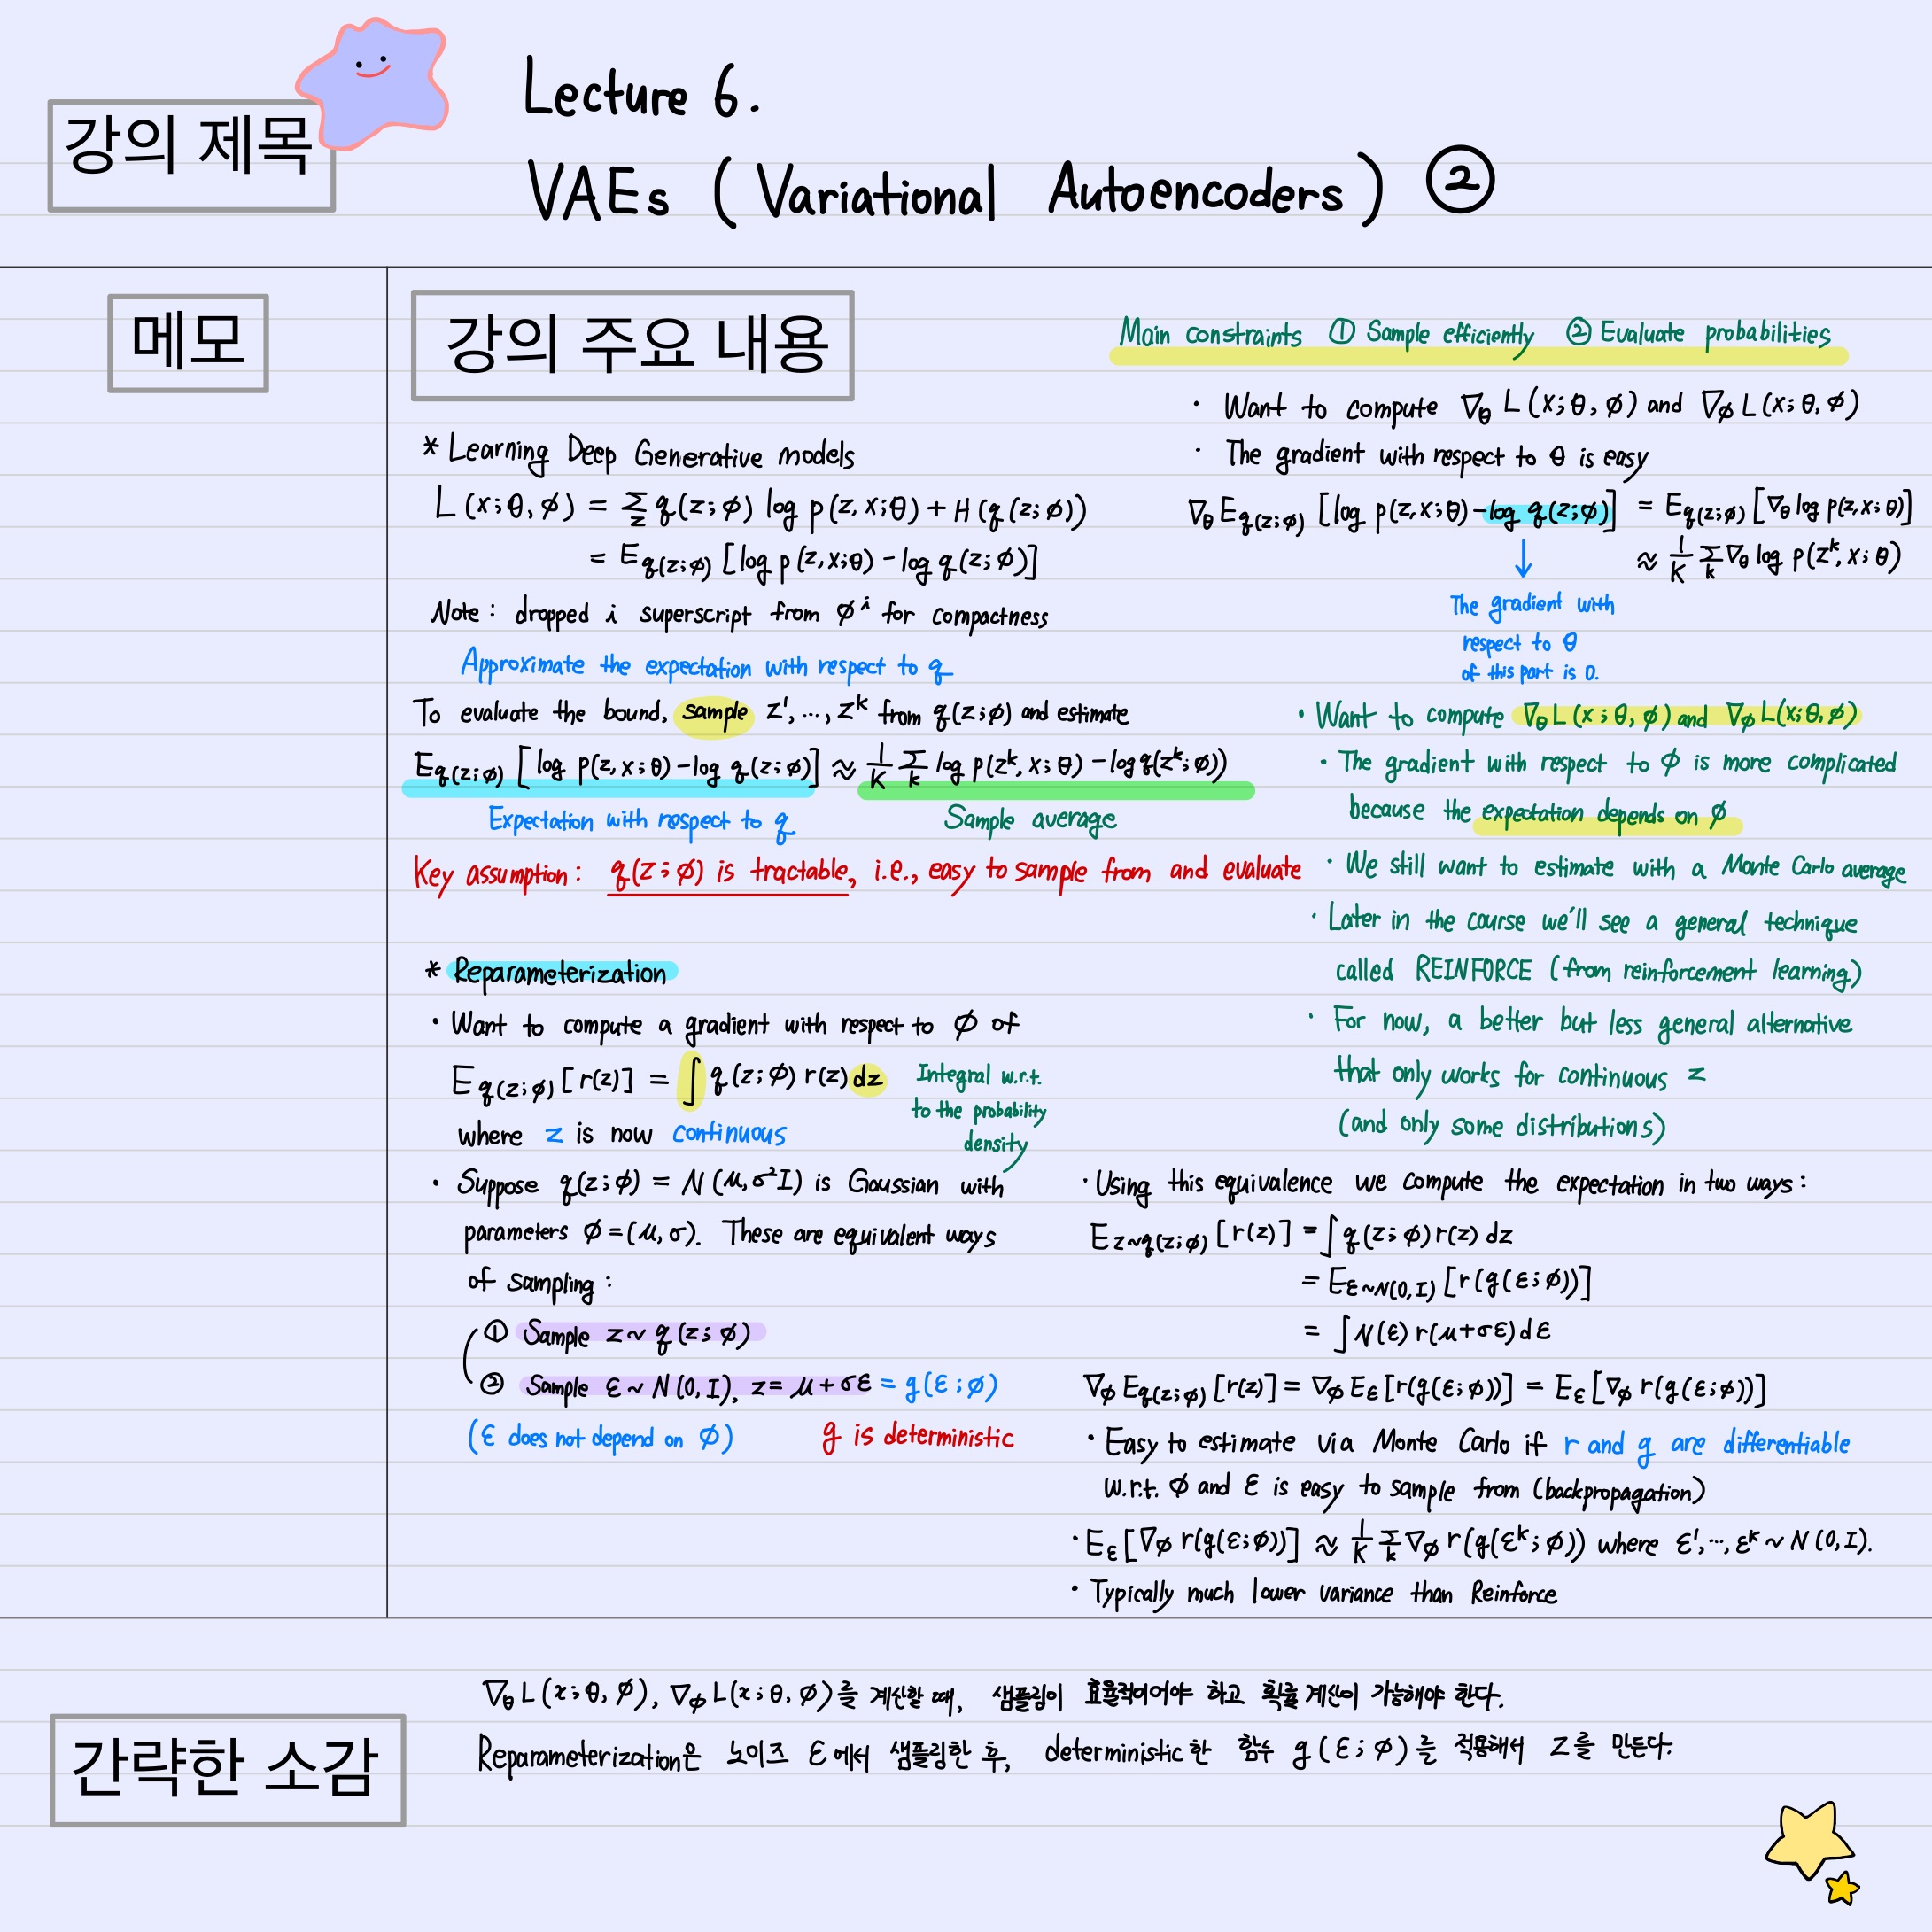 강의 제목
Lecture 6.
VAEs (Variational Autoencoders) ②
메모
강의 주요 내용
* Learning Deep Generative models
L(x;θ,ϕ) = Σ_z q(z;ϕ) log p(z,x;θ) + H(q(z;ϕ))
= E_q(z;ϕ) [log p(z,x;θ) - log q(z;ϕ)]
Note: dropped i superscript from ϕ^i for compactness
Approximate the expectation with respect to q
To evaluate the bound, sample z^1, ..., z^k from q(z;ϕ) and estimate
E_q(z;ϕ) [log p(z,x;θ) - log q(z;ϕ)] ≈ 1/K Σ_k log p(z^k,x;θ) - log q(z^k;ϕ))
Expectation with respect to q
Sample average
Key assumption: q(z;ϕ) is tractable, i.e., easy to sample from and evaluate
* Reparameterization
· Want to compute a gradient with respect to ϕ of
E_q(z;ϕ) [r(z)] = ∫ q(z;ϕ) r(z) dz
Integral w.r.t.
to the probability
density
where z is now continuous
· Suppose q(z;ϕ) = N(μ,σ²I) is Gaussian with
parameters ϕ=(μ,σ). These are equivalent ways
of sampling:
① Sample z~q(z;ϕ)
② Sample ε~N(0,I), z=μ+σε = g(ε;ϕ)
(ε does not depend on ϕ)
g is deterministic
Main constraints ① Sample efficiently ② Evaluate probabilities
· Want to compute ∇_θ L(x;θ,ϕ) and ∇_ϕ L(x;θ,ϕ)
· The gradient with respect to θ is easy
∇_θ E_q(z;ϕ) [log p(z,x;θ) - log q(z;ϕ)] = E_q(z;ϕ) [∇_θ log p(z,x;θ)]
≈ 1/K Σ_k ∇_θ log p(z^k,x;θ)
↓
The gradient with
respect to θ
of this part is 0.
· Want to compute ∇_θ L(x;θ,ϕ) and ∇_ϕ L(x;θ,ϕ)
· The gradient with respect to ϕ is more complicated
because the expectation depends on ϕ
· We still want to estimate with a Monte Carlo average
· Later in the course we'll see a general technique
called REINFORCE (from reinforcement learning)
· For now, a better but less general alternative
that only works for continuous z
(and only some distributions)
· Using this equivalence we compute the expectation in two ways:
E_z~q(z;ϕ) [r(z)] = ∫ q(z;ϕ) r(z) dz
= E_ε~N(0,I) [r(g(ε;ϕ))]
= ∫ N(ε) r(μ+σε) dε
∇_ϕ E_q(z;ϕ) [r(z)] = ∇_ϕ E_ε [r(g(ε;ϕ))] = E_ε [∇_ϕ r(g(ε;ϕ))]
· Easy to estimate via Monte Carlo if r and g are differentiable
w.r.t. ϕ and ε is easy to sample from (backpropagation)
· E_ε [∇_ϕ r(g(ε;ϕ))] ≈ 1/K Σ_k ∇_ϕ r(g(ε^k;ϕ)) where ε^1, ..., ε^k ~ N(0,I).
· Typically much lower variance than Reinforce
간략한 소감
∇_θ L(x;θ,ϕ), ∇_ϕ L(x;θ,ϕ)를 계산할 때, 샘플링이 효율적이어야 하고 확률 계산이 가능해야 한다.
Reparameterization은 노이즈 ε에서 샘플링한 후, deterministic한 함수 g(ε;ϕ)를 적용해서 z를 만든다.